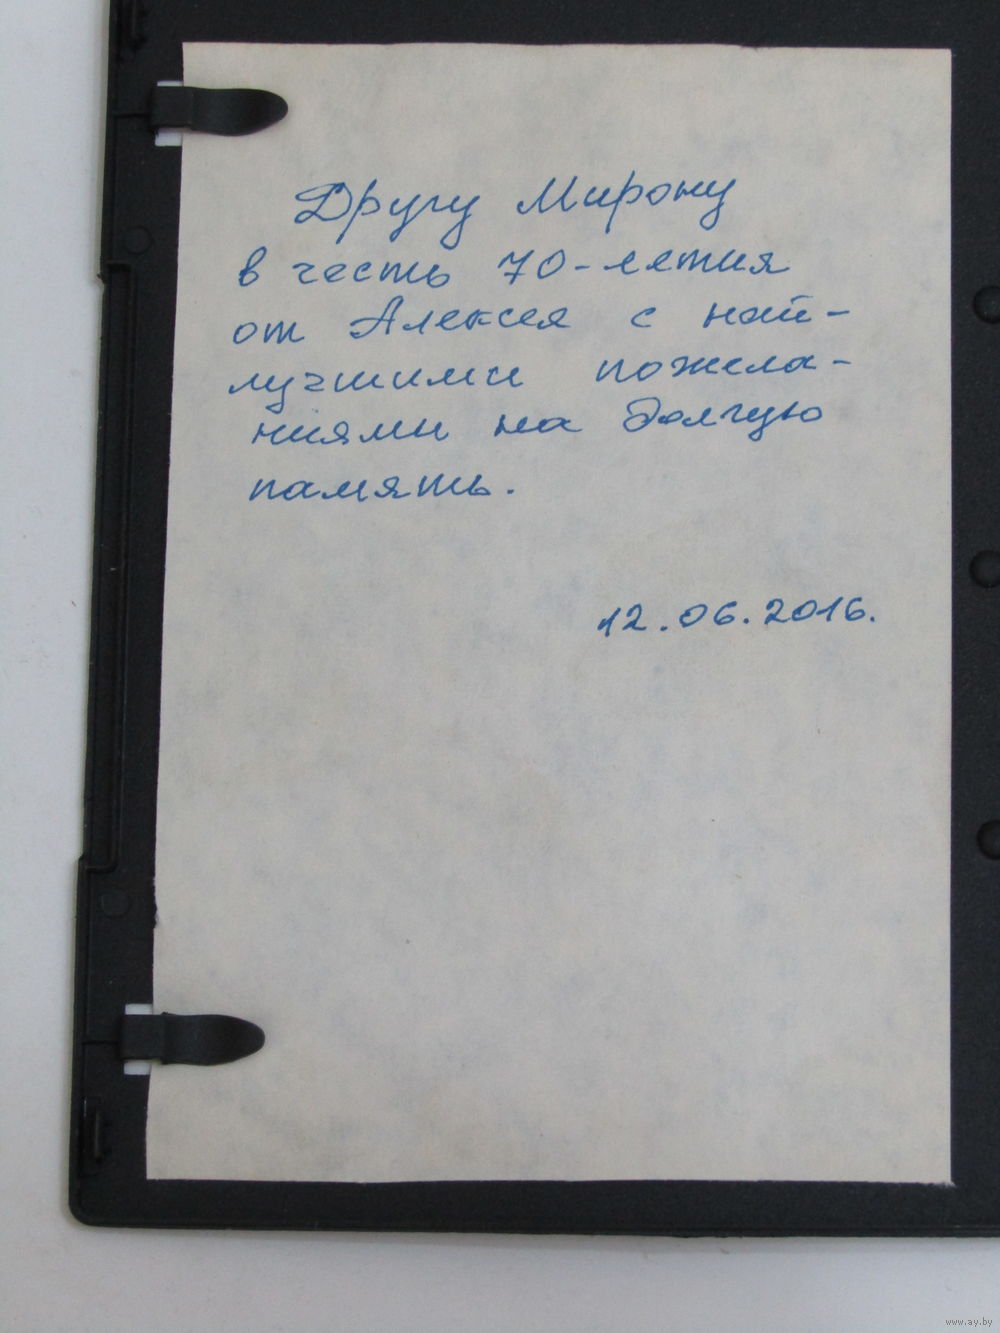 Другу Мирону
в честь 70-летия
от Алексея с най-
лучшими пожела-
ниями на долгую
память.
12.06.2016.
www.ay.by